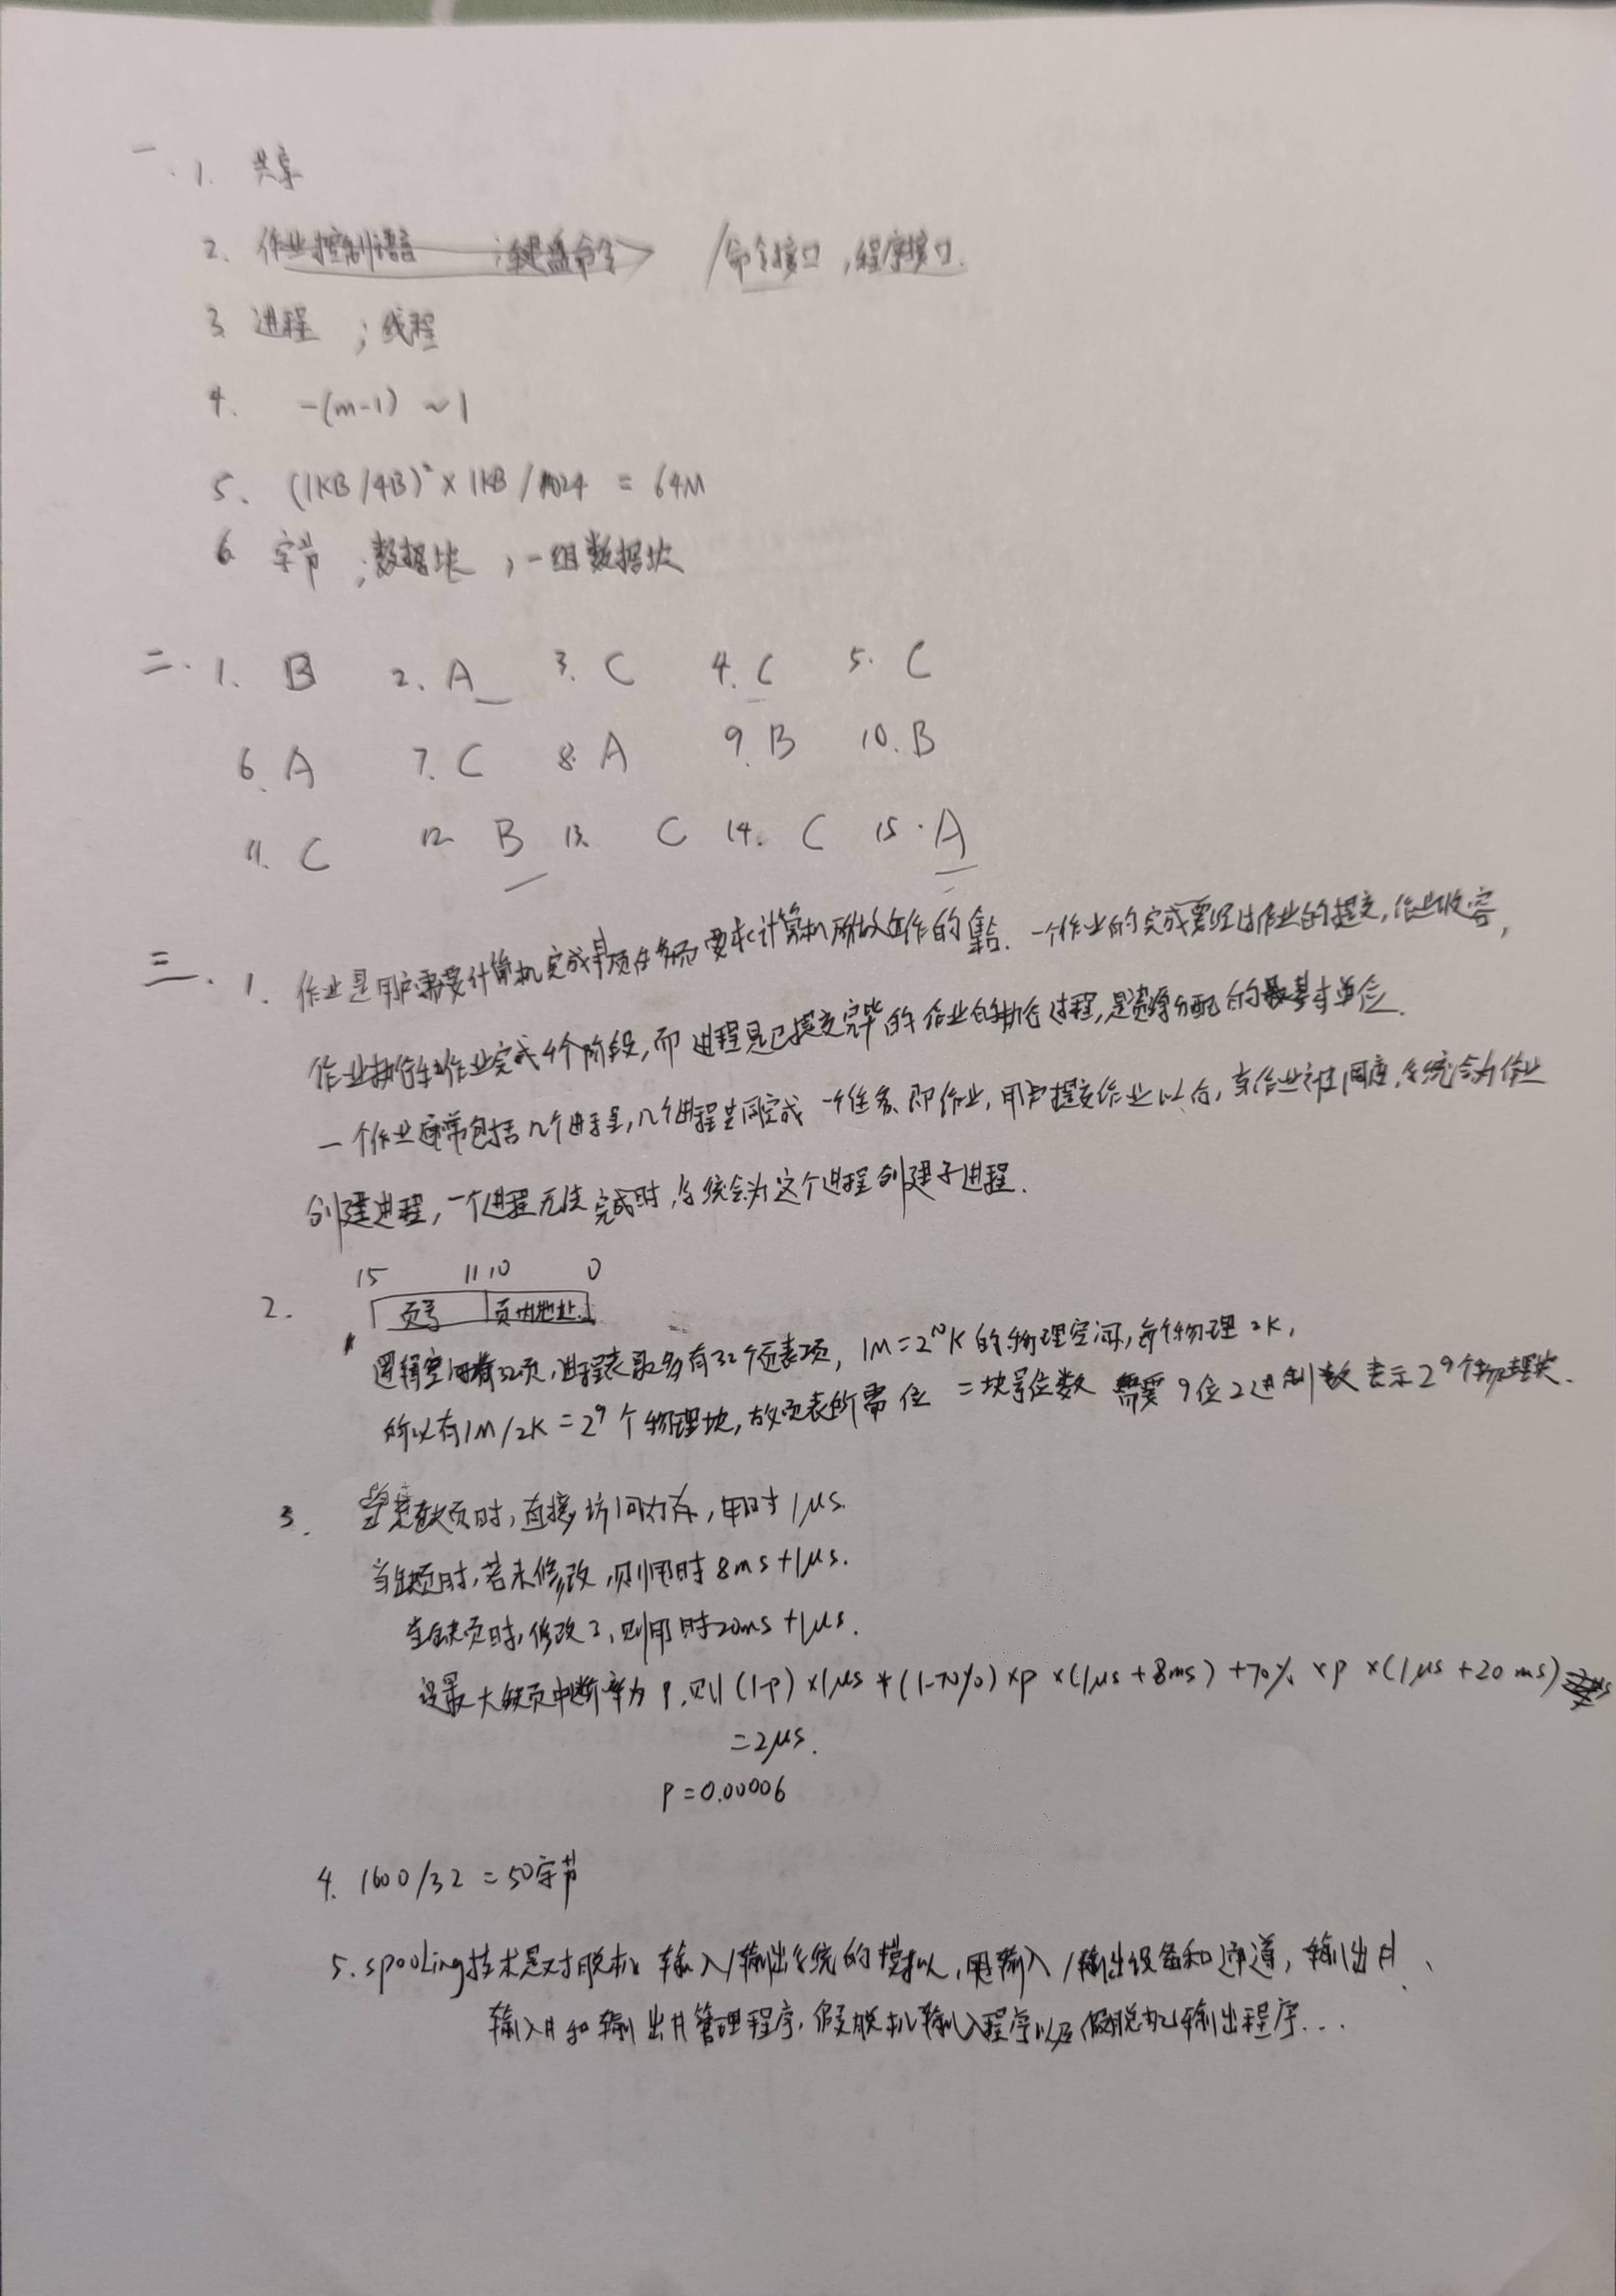 一. 1. 共享
2. 作业控制语言 ; 键盘命令 / 命令接口, 程序接口.
3 进程 ; 线程
4. -(m-1) ~ 1
5. (1KB/4B)² × 1KB/1024 = 64M
6. 字节 ; 数据块 ; 一组数据块
二. 1. B 2. A 3. C 4. C 5. C
6. A 7. C 8. A 9. B 10. B
11. C 12. B 13. C 14. C 15. A
三. 1. 作业是用户需要计算机完成某项任务而要求计算机所做工作的集合. 一个作业的完成要经过作业的提交, 作业收容,
作业执行和作业完成4个阶段, 而进程是已提交完毕的作业的执行过程, 是资源分配的基本单位.
一个作业通常包括几个进程, 几个进程共同完成一个任务, 即作业, 用户提交作业以后, 当作业被调度, 系统会为作业
创建进程, 一个进程无法完成时, 系统会为这个进程创建子进程.
15 11 10 0
2. 页号 页内地址
逻辑空间有32页, 进程表最多有32个页表项, 1M=2¹⁰K的物理空间, 每个物理2K,
所以有1M/2K=2⁹个物理块, 故页表所需位=块号位数 需要9位2进制数表示2⁹个物理块.
3. 当未缺页时, 直接访问内存, 用时1μs.
当缺页时, 若未修改, 则用时8ms+1μs.
当缺页时, 修改了, 则用时20ms+1μs.
设最大缺页中断率为P, 则(1-P)×1μs+(1-70%)×P×(1μs+8ms)+70%×P×(1μs+20ms)
=2μs.
P=0.00006
4. 1600/32=50字节
5. spooling技术是对脱机输入/输出系统的模拟, 用输入/输出设备和通道, 输出井、
输入井和输出井管理程序, 假脱机输入程序以及假脱机输出程序...